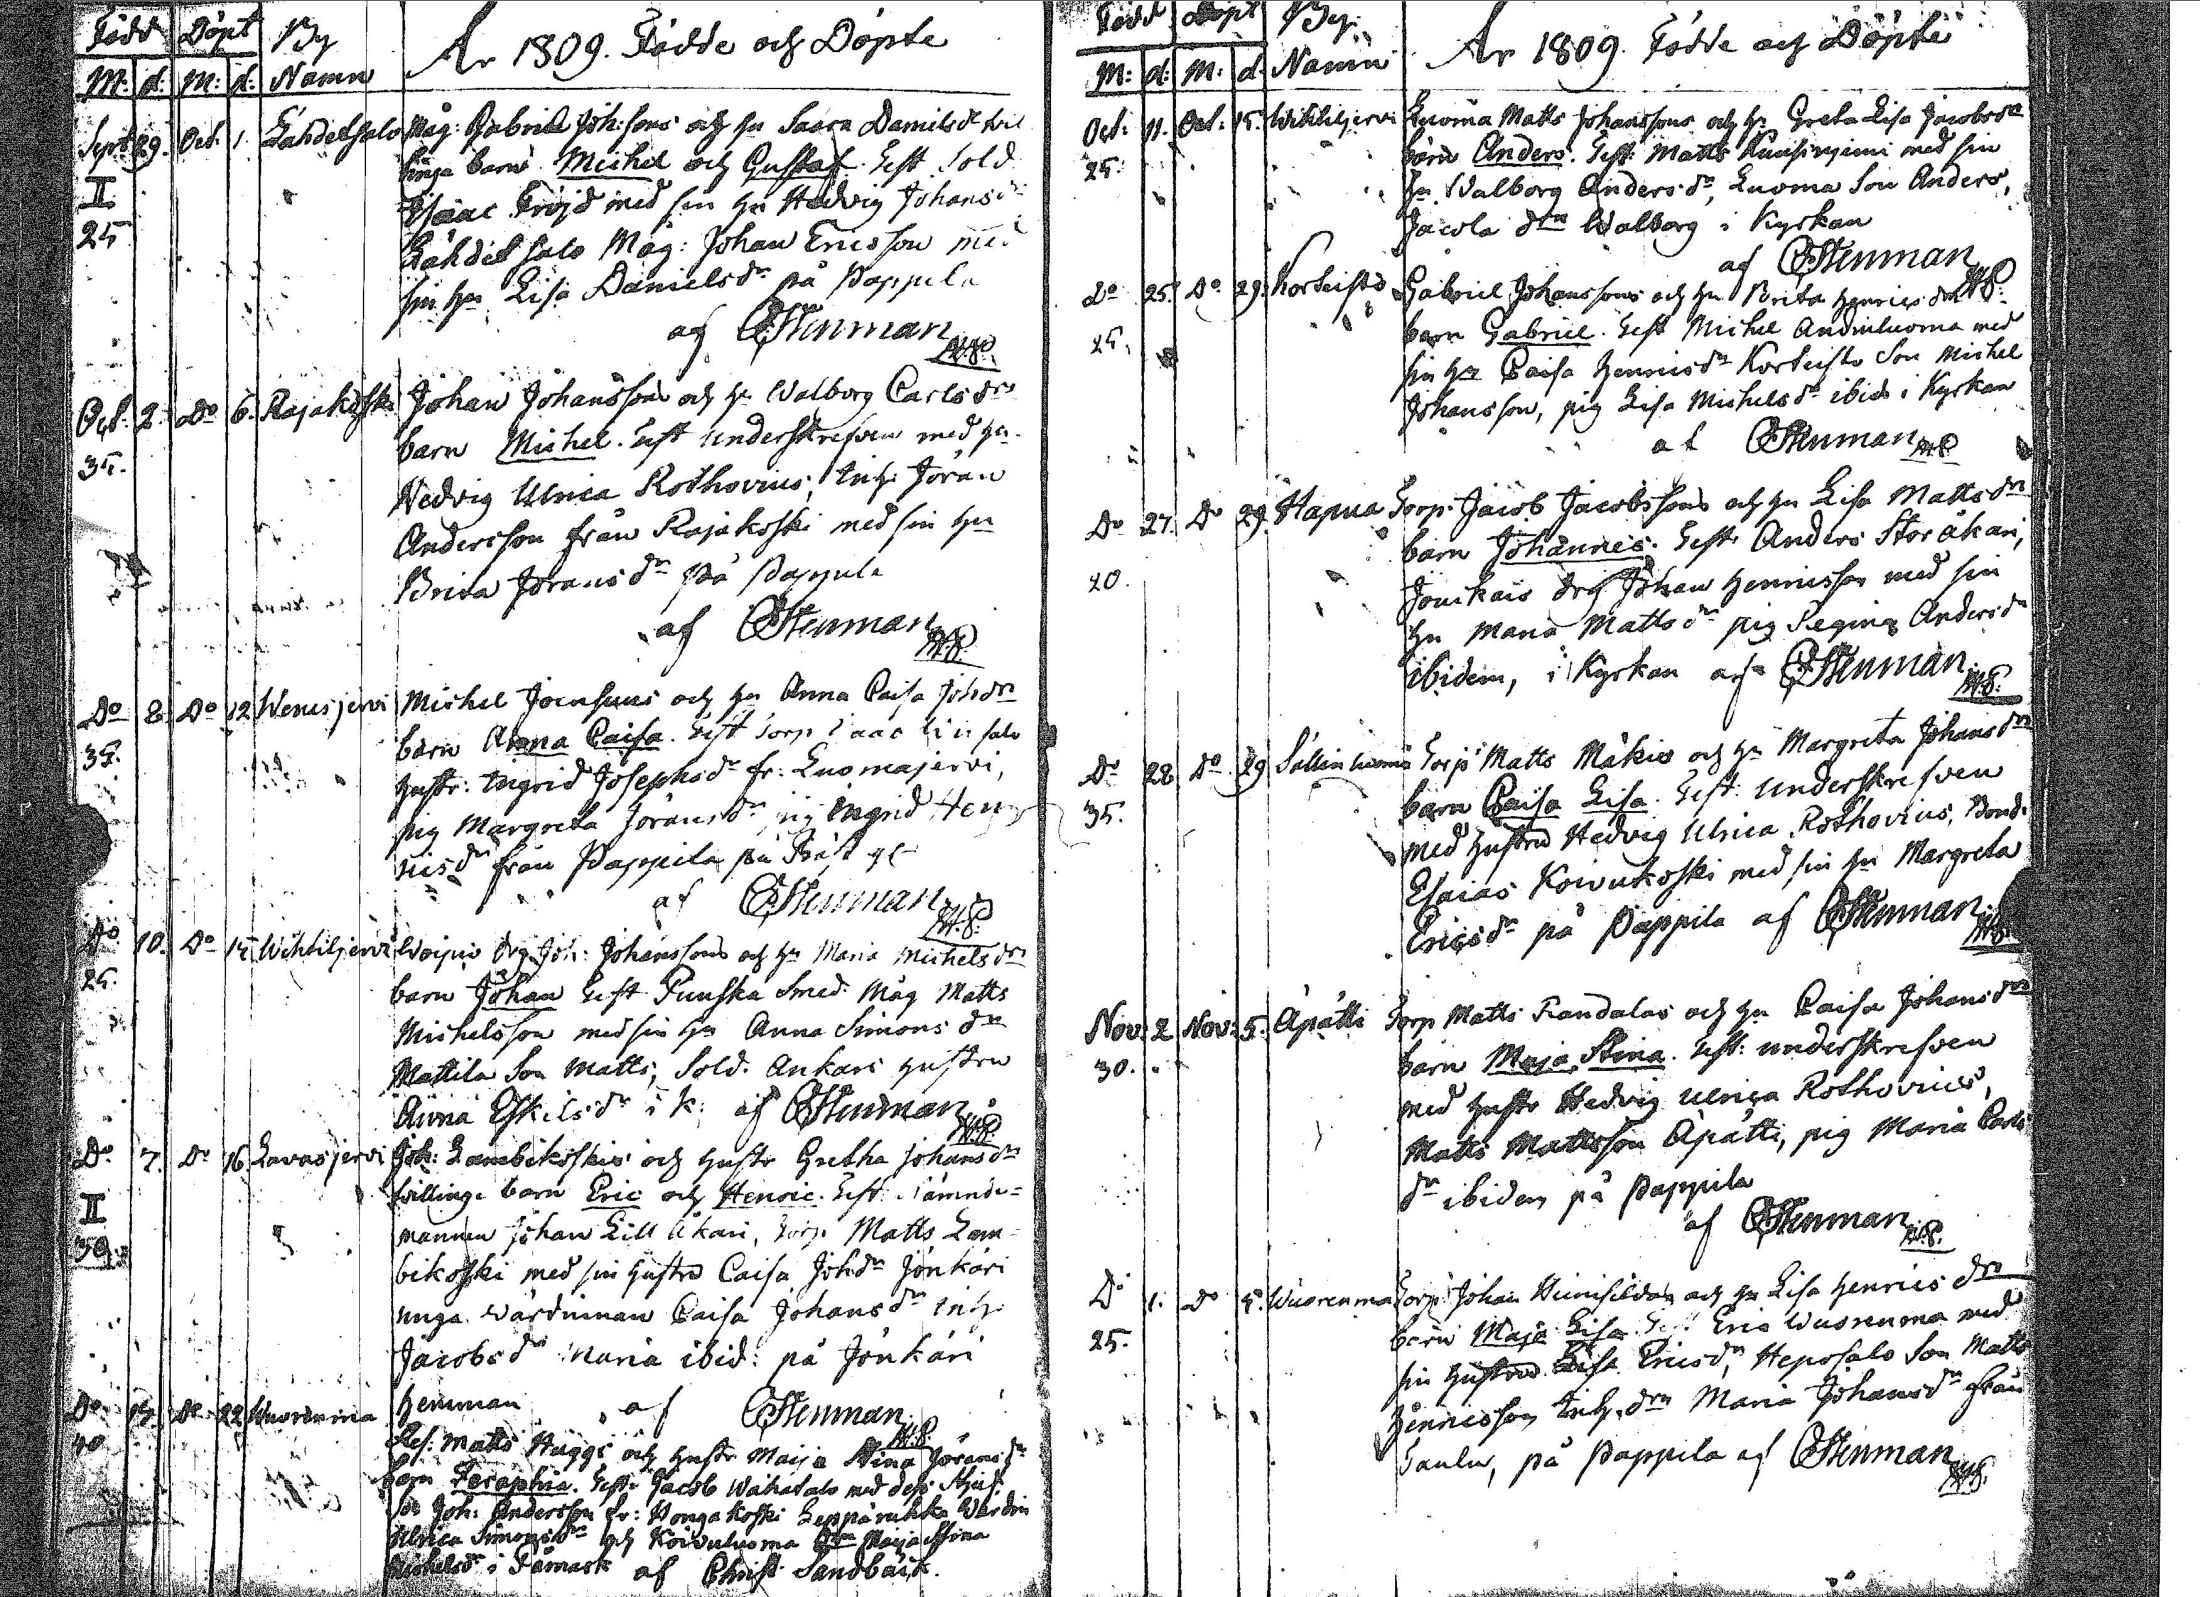 Född Döpt By
M: d: M: d: Namn
År 1809. Födde och Döpte
Sept 29. Oct. 1. Lähdetsalo Måg: Gabriel Joh:sons och hu Saara Danielsdr
barn Michel och Gustaf. Test Sold
II
Isaac Fröjd med sin hu Hedvig Johansdr
25
Lähdetsalo Måg: Johan Ericsson med
sin hu Lisa Danielsdr på Pappila
af CStenman
Oct. 2. Do 6. Rajakoski Johan Johanssons och hu Walborg Carlsdrs
barn Michel. Test underskrefven med hu
35.
Hedvig Ulrica Rothovius, Inh: Jöran
Andersson från Rajakoski med sin hu
Brita Joransdr på Pappila
af CStenman
Do 8. Do 12 Wenesjervi Michel Joensuus och hu Anna Caisa Johdrs
barn Anna Caisa. Test Torp
35.
hustr: Ingrid Josephsdr fr: Luomajervi,
pig Margreta Joransdr pig Ingrid Hen
ricsdr från Pappila på
af CStenman
Do 10. Do 15 Wihtiljervi drg Joh: Johanssons och hu Maria Michelsdrs
25.
barn Johan Test Punska Smed. Måg Matts
Michelsson med sin hu Anna Simonsdr
Mattila Son Matts, Sold. Ankars hustru
Anna Eskilsdr i k: af CStenman
Do 7. Do 16. Lavasjervi Joh: Lambikoskis och hustr Gretha Johansdrs
tvillinge barn Eric och Henric. Test: Nämnde=
II
mannen Johan Lill Ikari, Torp. Matts Lam-
30.
bikoski med sin hustru Caisa Johdr Jonkäri
unga wärdinnan Caisa Johansdr Inh:
Jacobsdr Maria ibid: på Jonkäri
hemman af CStenman
Do Do 22 Wuorenma
40
Matts Huggs och hustr Maija Stina Joransdr
barn Seraphia. Test: Jacob Wahasalo med dess
Joh: Andersson fr: Hongakoski Leppäruhka Wärdin
Ulrica Simonsdr och Koivuluoma Maija Stina
Michelsdr i Dåmark af Christ. Sandbäck.
Född Döpt By
M: d: M: d. Namn
År 1809. Födde och Döpte
Oct: 11. Oct: 15. Wihtiljervi Luoma Matts Johanssons och hu Greta Lisa Jacobsdrs
25.
barn Anders. Test: Matts med sin
hu Walborg Andersdr, Luoma Son Anders,
Jacola drn Walborg i Kyrkan
af CStenman
do 25. Do 29. Korteisto Gabriel Johanssons och hu Brita Henricsdrs
25.
barn Gabriel. Test Michel Andinluoma med
sin hu Caisa Henricsdr Korteisto Son Michel
Johansson, pig Lisa Michelsdr ibid: i Kyrkan
af CStenman
Do 27. Do 29. Hapua Torp. Jacob Jacobssons och hu Lisa Mattsdrs
20.
barn Johannes. Test: Anders Storåkari,
drg Johan Henricsson med sin
hu Maria Mattsdr pig Regina Andersdr
ibidem, i Kyrkan af CStenman
Do 28 Do 29 Torp Matts Mäkis och hu Margreta Johansdrs
35.
barn Caisa Lisa. Test: underskrefven
med hustru Hedvig Ulrica Rothovius, Bond.
Esaias Koivukoski med sin hu Margreta
Ericsdr på Pappila af CStenman
Nov: 2 Nov: 5. Äpätti Torp Matts Randalas och hu Caisa Johansdrs
30.
barn Maja Stina. Test: underskrefven
med hustr Hedvig Ulrica Rothovius,
Matts Mattsson Äpätti, pig Maria Carls
dr ibidem på Pappila
af CStenman
Do 1. Do 5. Wuorenma Torp. Johan och hu Lisa Henricsdrs
25.
barn Maja Lisa. Eric Wuorenma med
sin hustru Lisa Ericsdr, Heposalo Son Matts
Henricsson, Inh. drn Maria Johansdr från
på Pappila af CStenman